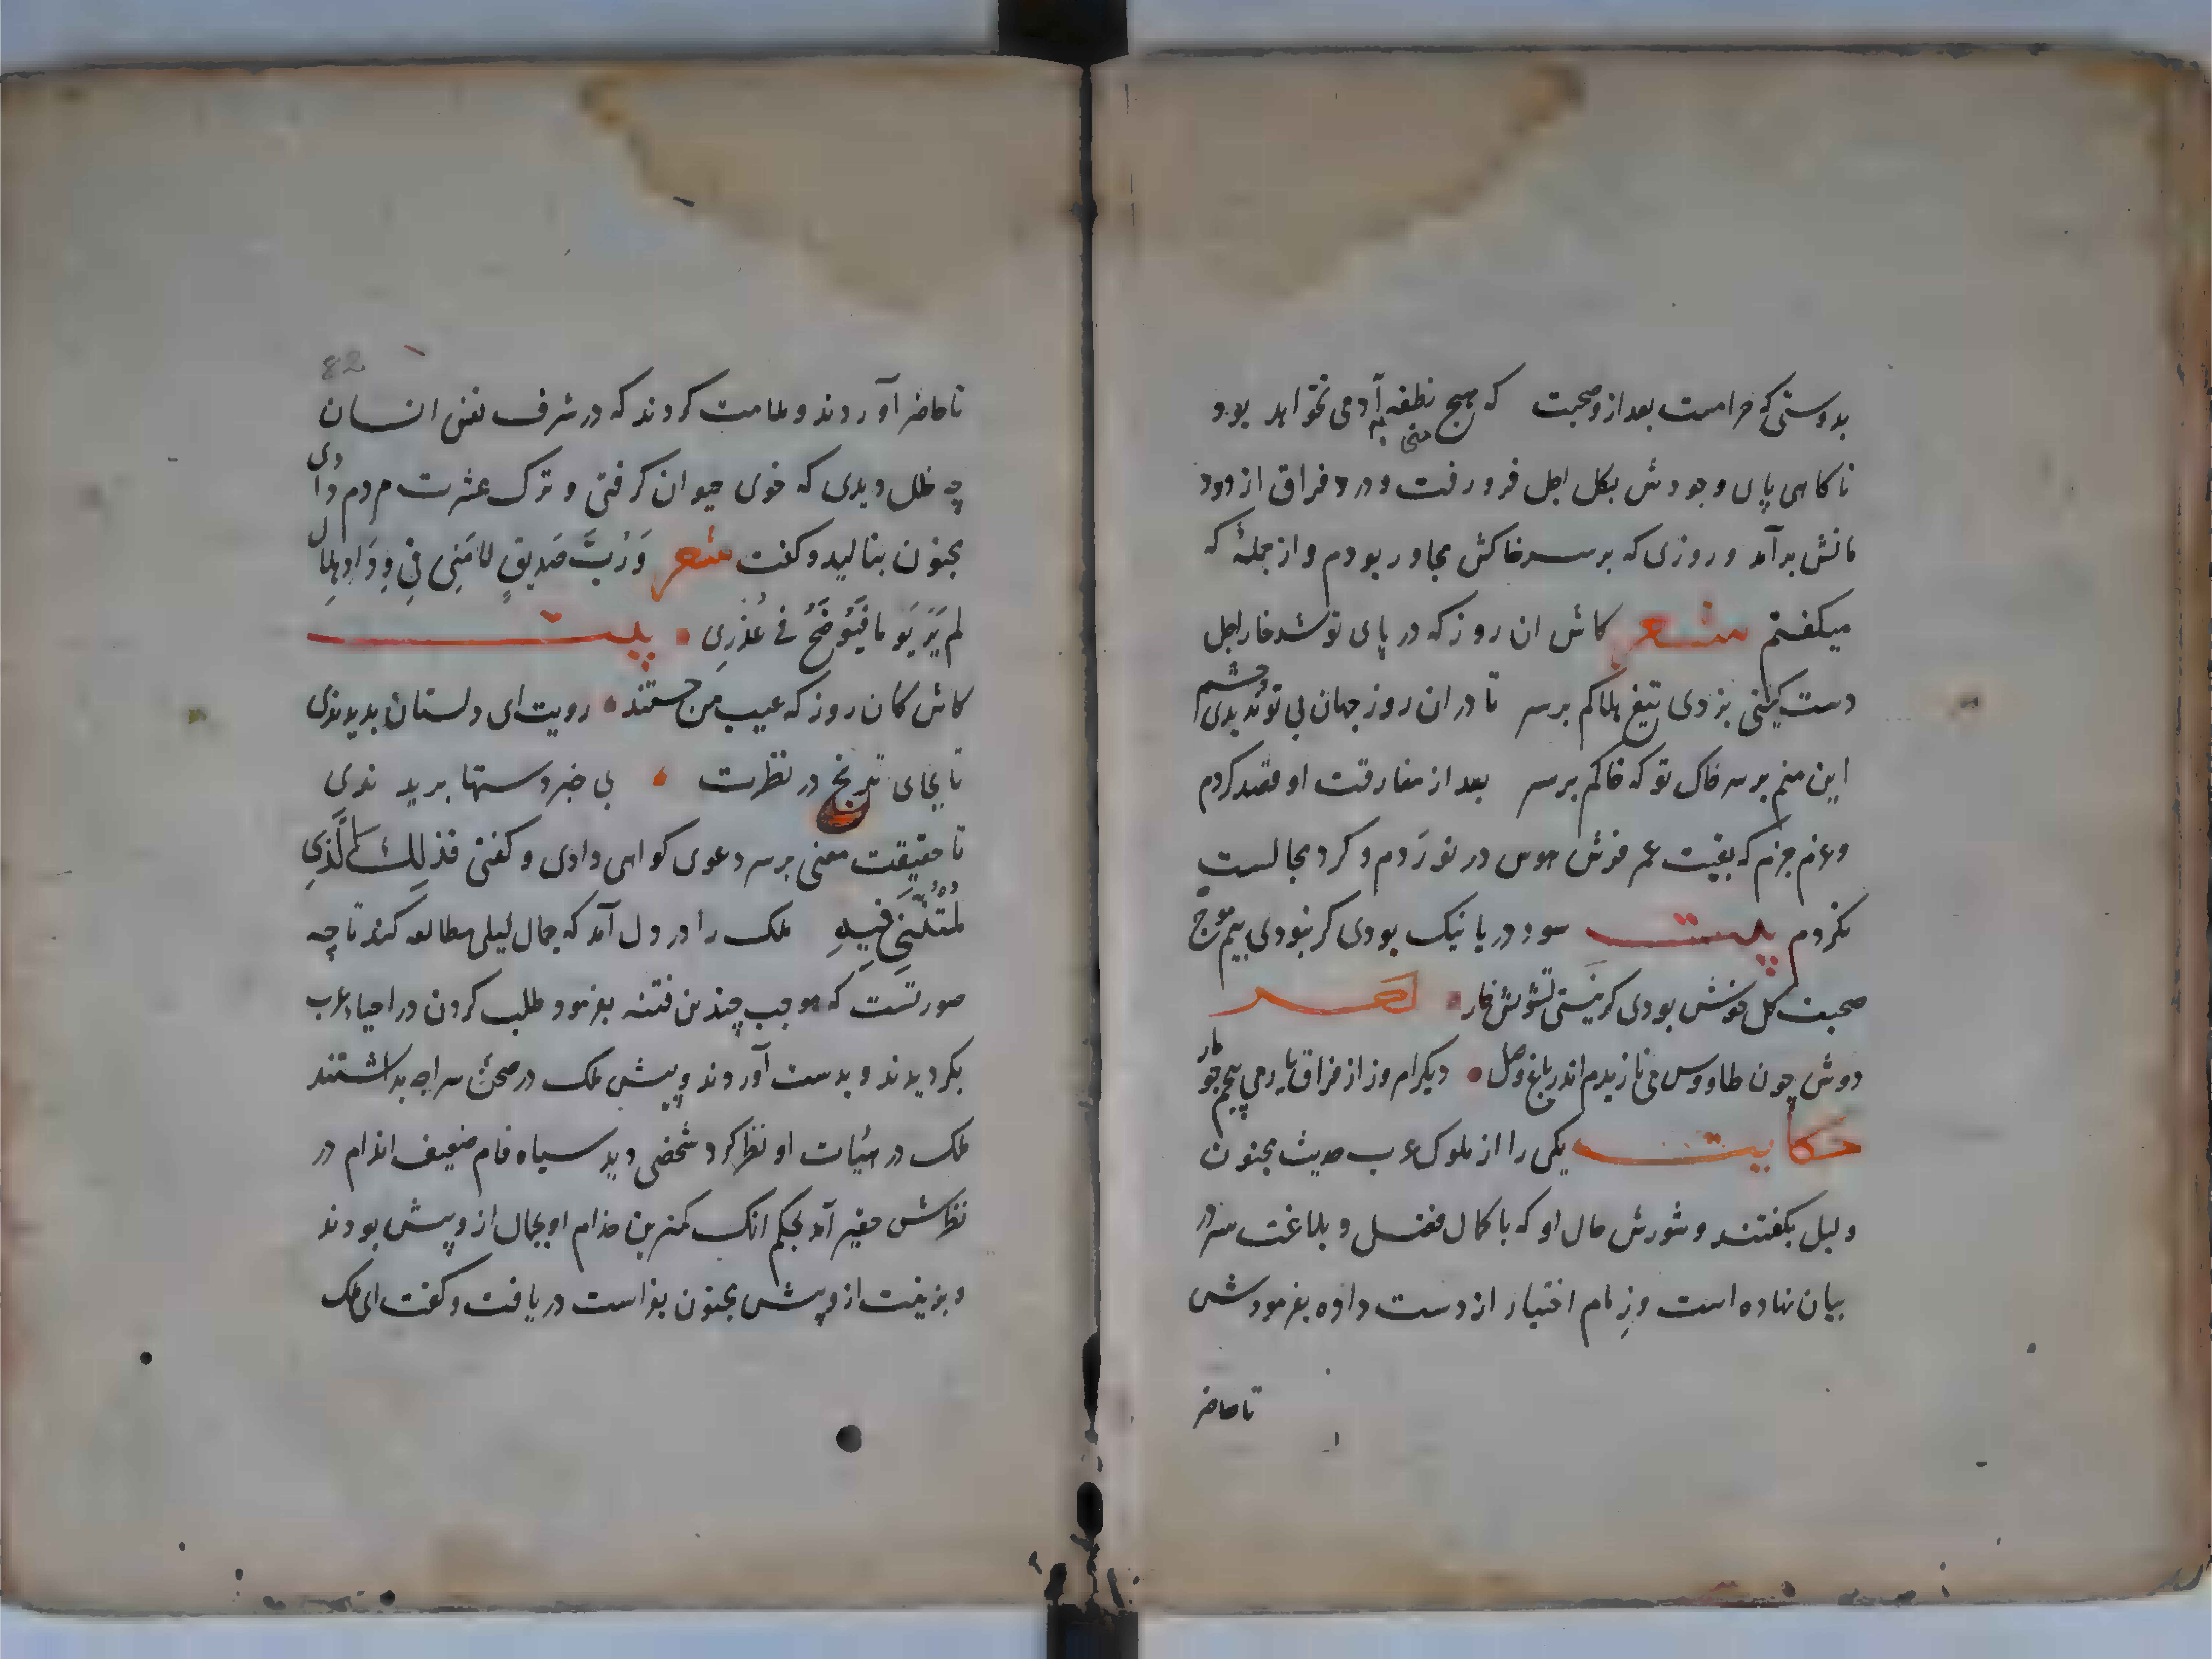 بدوستی که حرامست بعد ازو صحبت که هیچ نطفه آدمی نخواهد بود
ناکاهی پای وجودش بکل اجل فرو رفت و درد فراق از دود
مانش برآمد و روزی که بر سر خاکش مجاور بودم و از جملهٔ که
میکفتم شعر کاش ان روز که در پای تو شد خار اجل
دست کیتی بزدی تیغ هلاکم بر سر تا دران روز جهان بی تو ندیدی چشم
این منم بر سر خاک تو که خاکم بر سر بعد از مفارقت او قصد کردم
و عزم جزم که بقیت عمر فرش هوس در نوردم و کرد مجالست
نکردم بیت سود دریا نیک بودی کر نبودی بیم موج
صحبت کل خوش بودی کر نیستی تشویش خار
دوش چون طاووس می نازیدم اندر باغ وصل دیکر امروز از فراق یار می پیچم چو مار
حکایت یکی را از ملوک عرب حدیث مجنون
و لیل بکفتند و شورش حال او که با کمال فضل و بلاغت سر در
بیان نهاده است و زمام اختیار از دست داده بفرمودش
تاحاضر
82
تاحاضر آوردند و ملامت کردند که در شرف نفس انسان
چه خلل دیدی که خوی حیوان کرفتی و ترک عشرت مردم دادی
مجنون بنالید و کفت شعر وَرُبَّ صَدیقٍ لامَنِی فِی وِدَادِهَا
لم یَرَ یَومًا فَیُوَضَّحُ فی عُذرِی بیت
کاش کان روز که عیب من جستند رویت ای دلستان بدیدندی
تا بجای ترنج در نظرت بی خبر دستها بریدندی
تا حقیقت معنی بر سر دعوی کواهی دادی و کفتی فذلِكَ الَّذِی
لُمتُنَّنِی فِیهِ ملک را در دل آمد که جمال لیلی مطالعه کند تا چه
صورتست که موجب چندین فتنه بفرمود طلب کردن در احیاء عرب
بکردیدند و بدست آوردند و پیش ملک در صحن سراچه بداشتند
ملک در هیات او نظر کرد شخصی دید سیاه فام ضعیف اندام در
نظرش حقیر آمد بحکم انک کمترین خدام او بجمال ازو پیش بودند
و بزینت ازو پیش مجنون بفراست دریافت و کفت ای ملک